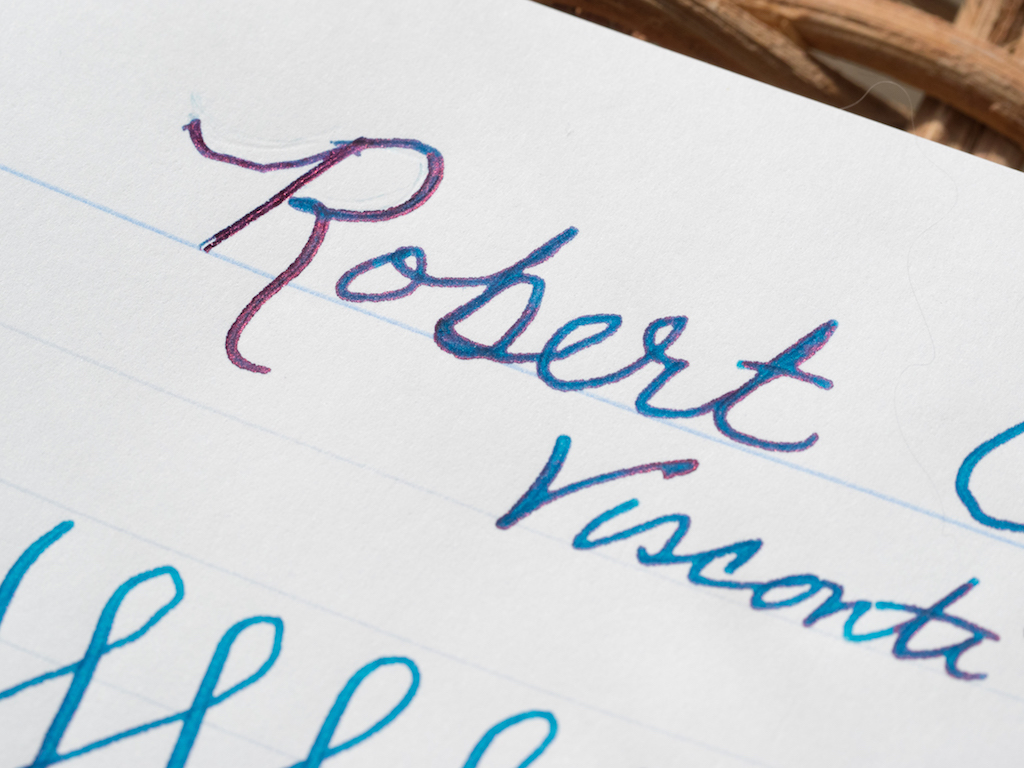 Robert
Visconti